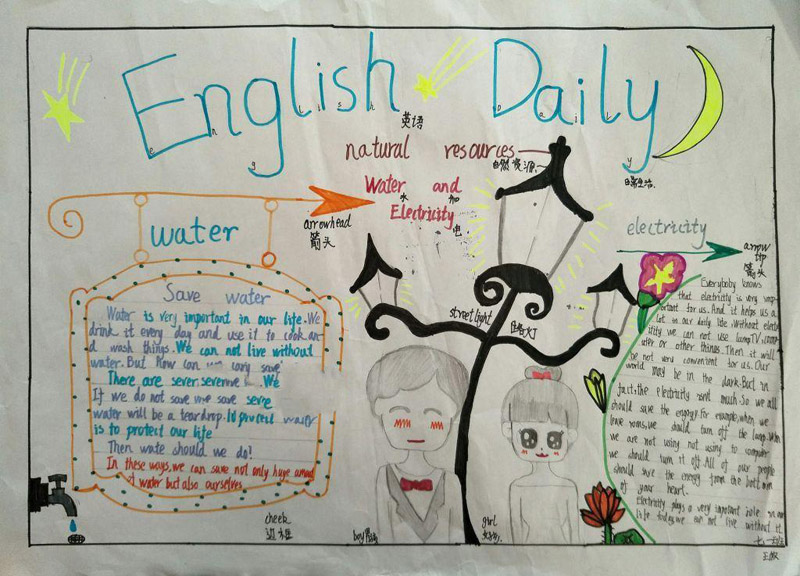 English Daily
英语
日常生活
natural resources
自然资源
Water and
水 和
Electricity
电
arrowhead
箭头
water
electricity
arrow
tip
箭头
street light
路灯
Save water
Water is very important in our life. We
drink it every day and use it to cook an-
d wash things. We can not live without
water. But how can
There are sever severe We
If we do not save we save
water will be a teardrop. To protect water
is to protect our life
Then wate should we do?
In these ways, we can save not only huge
water but also ourselves
cheek
boy
girl
Everybody knows
that electricity is very imp-
ortant for us. And it helps us a
lot in our daily life. Without elect-
icity we can not use TV,
or other things. Then it will
be not very convenient for us. Our
world may be in the dark. But in
fact, the electricity much. So we all
should save the energy. For example, when we
leave rooms, we should turn off the lamp. When
we are not using not using to computer
we should turn it off. All of our people
should save the energy from the bottom
of your heart.
Electricity plays a very important in our
life. today, we can not live without it.